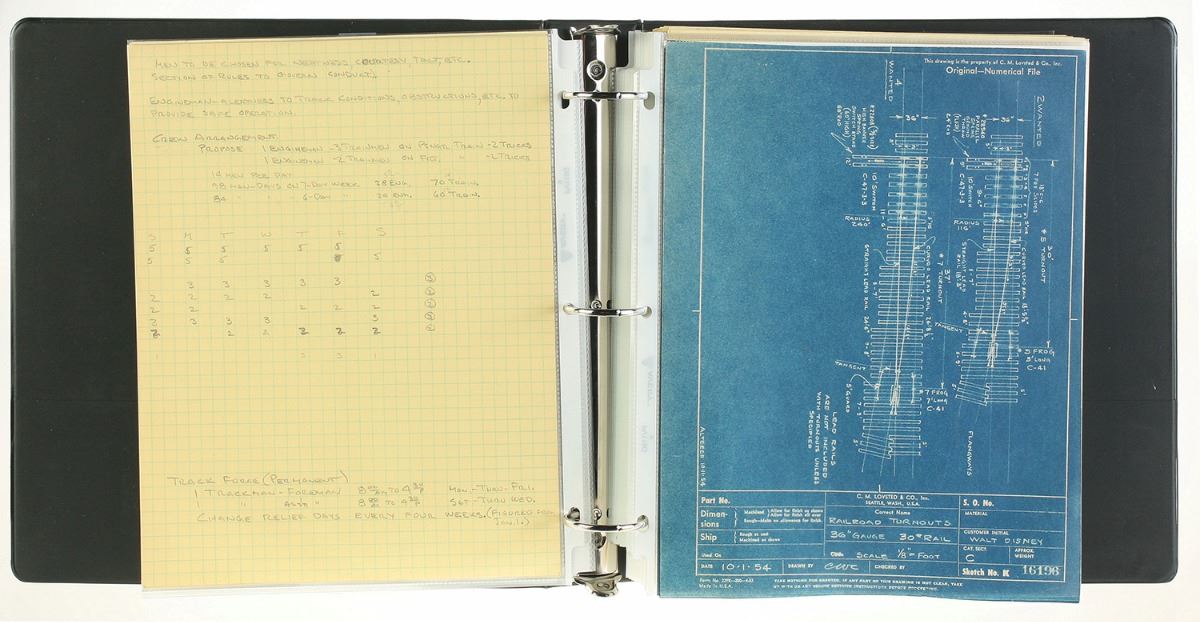 MEN TO BE CHOSEN FOR NEATNESS, COURTESY, TACT, ETC.
SECTION OF RULES TO GOVERN CONDUCT.
ENGINEMAN-ALERTNESS TO TRACK CONDITIONS, OBSTRUCTIONS, ETC. TO
PROVIDE SAFE OPERATION.
CREW ARRANGEMENT.
PROPOSE 1 ENGINEMAN - 3 TRAINMEN ON PSNGR. TRAIN - 2 TRICKS
1 ENGINEMAN - 2 TRAINMEN ON FGT. " - 2 TRICKS
14 MEN PER DAY
98 MAN-DAYS ON 7-DAY WEEK 28 ENG. 70 TRAIN.
84 " 6-DAY 24 ENG. 60 TRAIN.
S M T W T F S
5 5 5 5 5 5
5 5 5 5
3 3 3 3 3
2 2 2 2 2
2 2 2 2 2
2 3 3 3 3
2 2 2 2 2 2
1 3 3 1
TRACK FORCE (PERMANENT)
1 TRACKMAN-FOREMAN 8 00 AM TO 4 30 P MON.-THRU-FRI.
1 " ASST. " 8 00 AM TO 4 30 P SAT-THRU WED.
CHANGE RELIEF DAYS EVERY FOUR WEEKS. (FIGURED FROM
JAN. 1.)
This drawing is the property of C. M. Lovsted & Co., Inc.
Original—Numerical File
4
WANTED
2 WANTED
36"
36"
10' SWITCH
C-47-J-3
10' SWITCH
C-47-J-3
RADIUS
RADIUS
116'
STRAIGHT LEAD RAIL
CURVED LEAD RAIL
37'
# 7 TURNOUT
30'
# 5 TURNOUT
TANGENT
TANGENT
5' GUARD
# 5 FROG
5' LONG
C-41
# 7 FROG
7' LONG
C-41
FLANGWAYS
LEAD RAILS
ARE NOT INCLUDED
WITH TURNOUTS UNLESS
SPECIFIED
ALTERED 10-11-54
Part No.
Dimensions
Machined { Allow for finish as shown
Allow for finish all over
Rough—Make no allowance for finish.
Ship
Rough as cast
Machined as shown
Used On
DATE 10-1-54
DRAWN BY CWC
CHECKED BY
C. M. LOVSTED & CO., Inc.
SEATTLE, WASH., U.S.A.
Correct Name
RAILROAD TURNOUTS
36" GAUGE 30# RAIL
SCALE 1/8"= FOOT
S. O. No.
MATERIAL
CUSTOMER INITIAL
WALT DISNEY
CAT. SECT.
C
APPROX.
WEIGHT
Sketch No. K 16196
Made in U.S.A.
TAKE NOTHING FOR GRANTED. IF ANY PART OF THIS DRAWING IS NOT CLEAR, TAKE
UP WITH US AND SECURE DEFINITE INSTRUCTIONS BEFORE PROCEEDING.